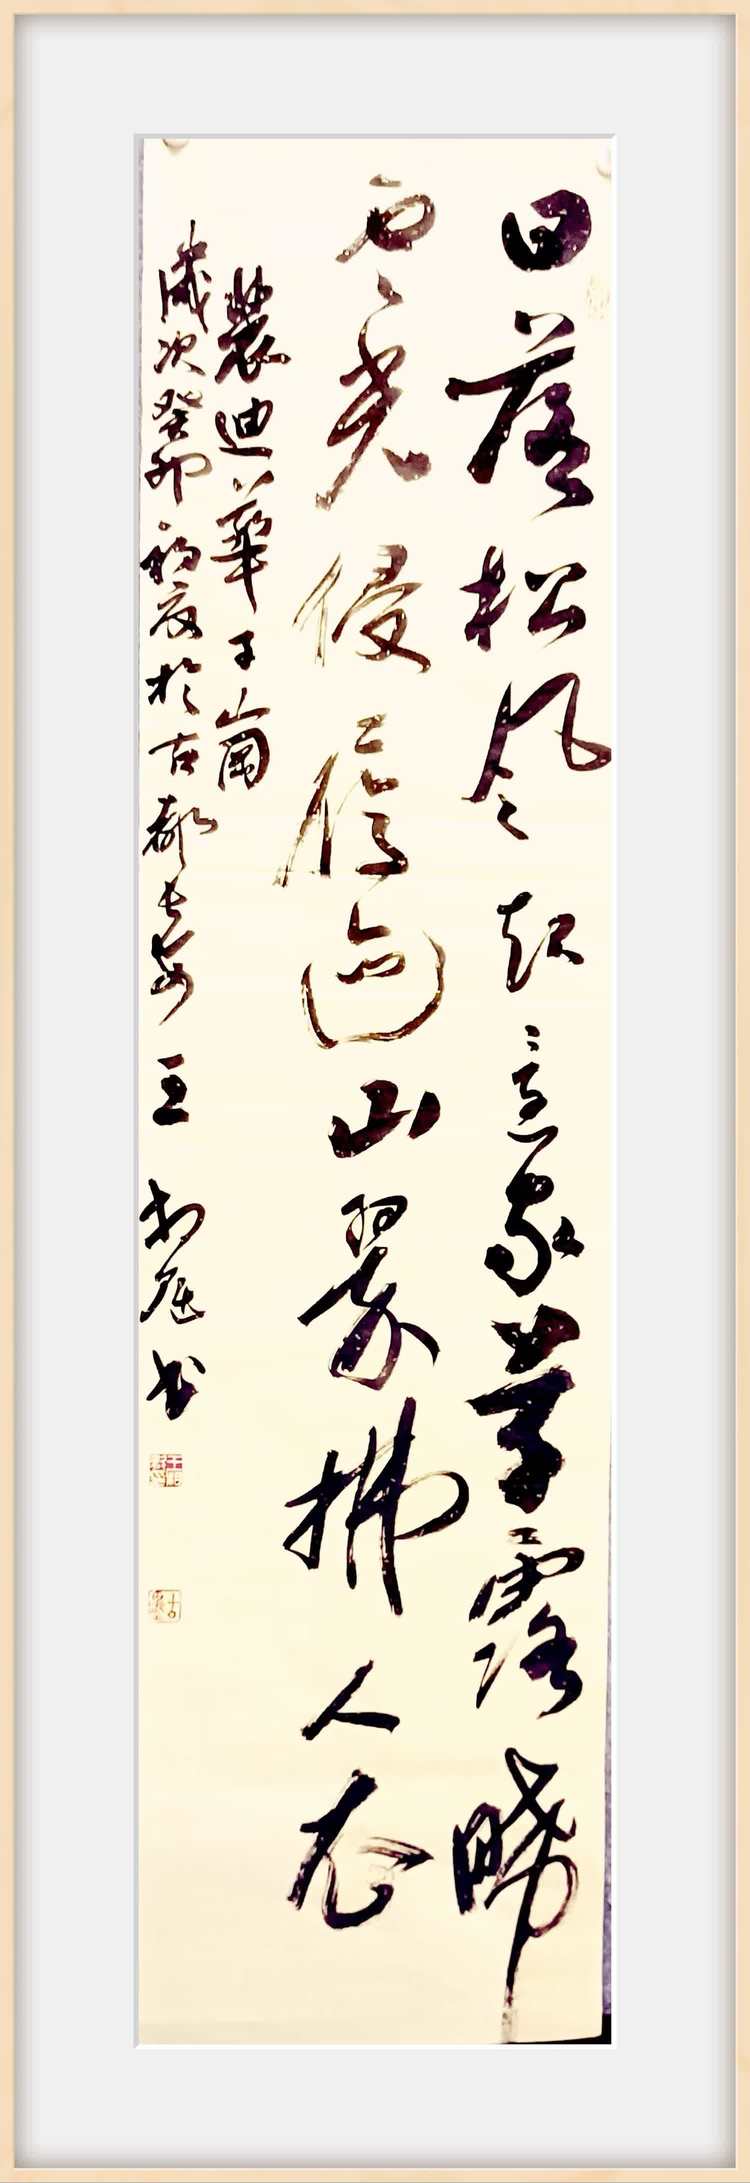 日落松风起還家草露晞
雲光侵履迹山翠拂人衣
裴迪華子崗
歲次癸卯初夏於古都长安王书